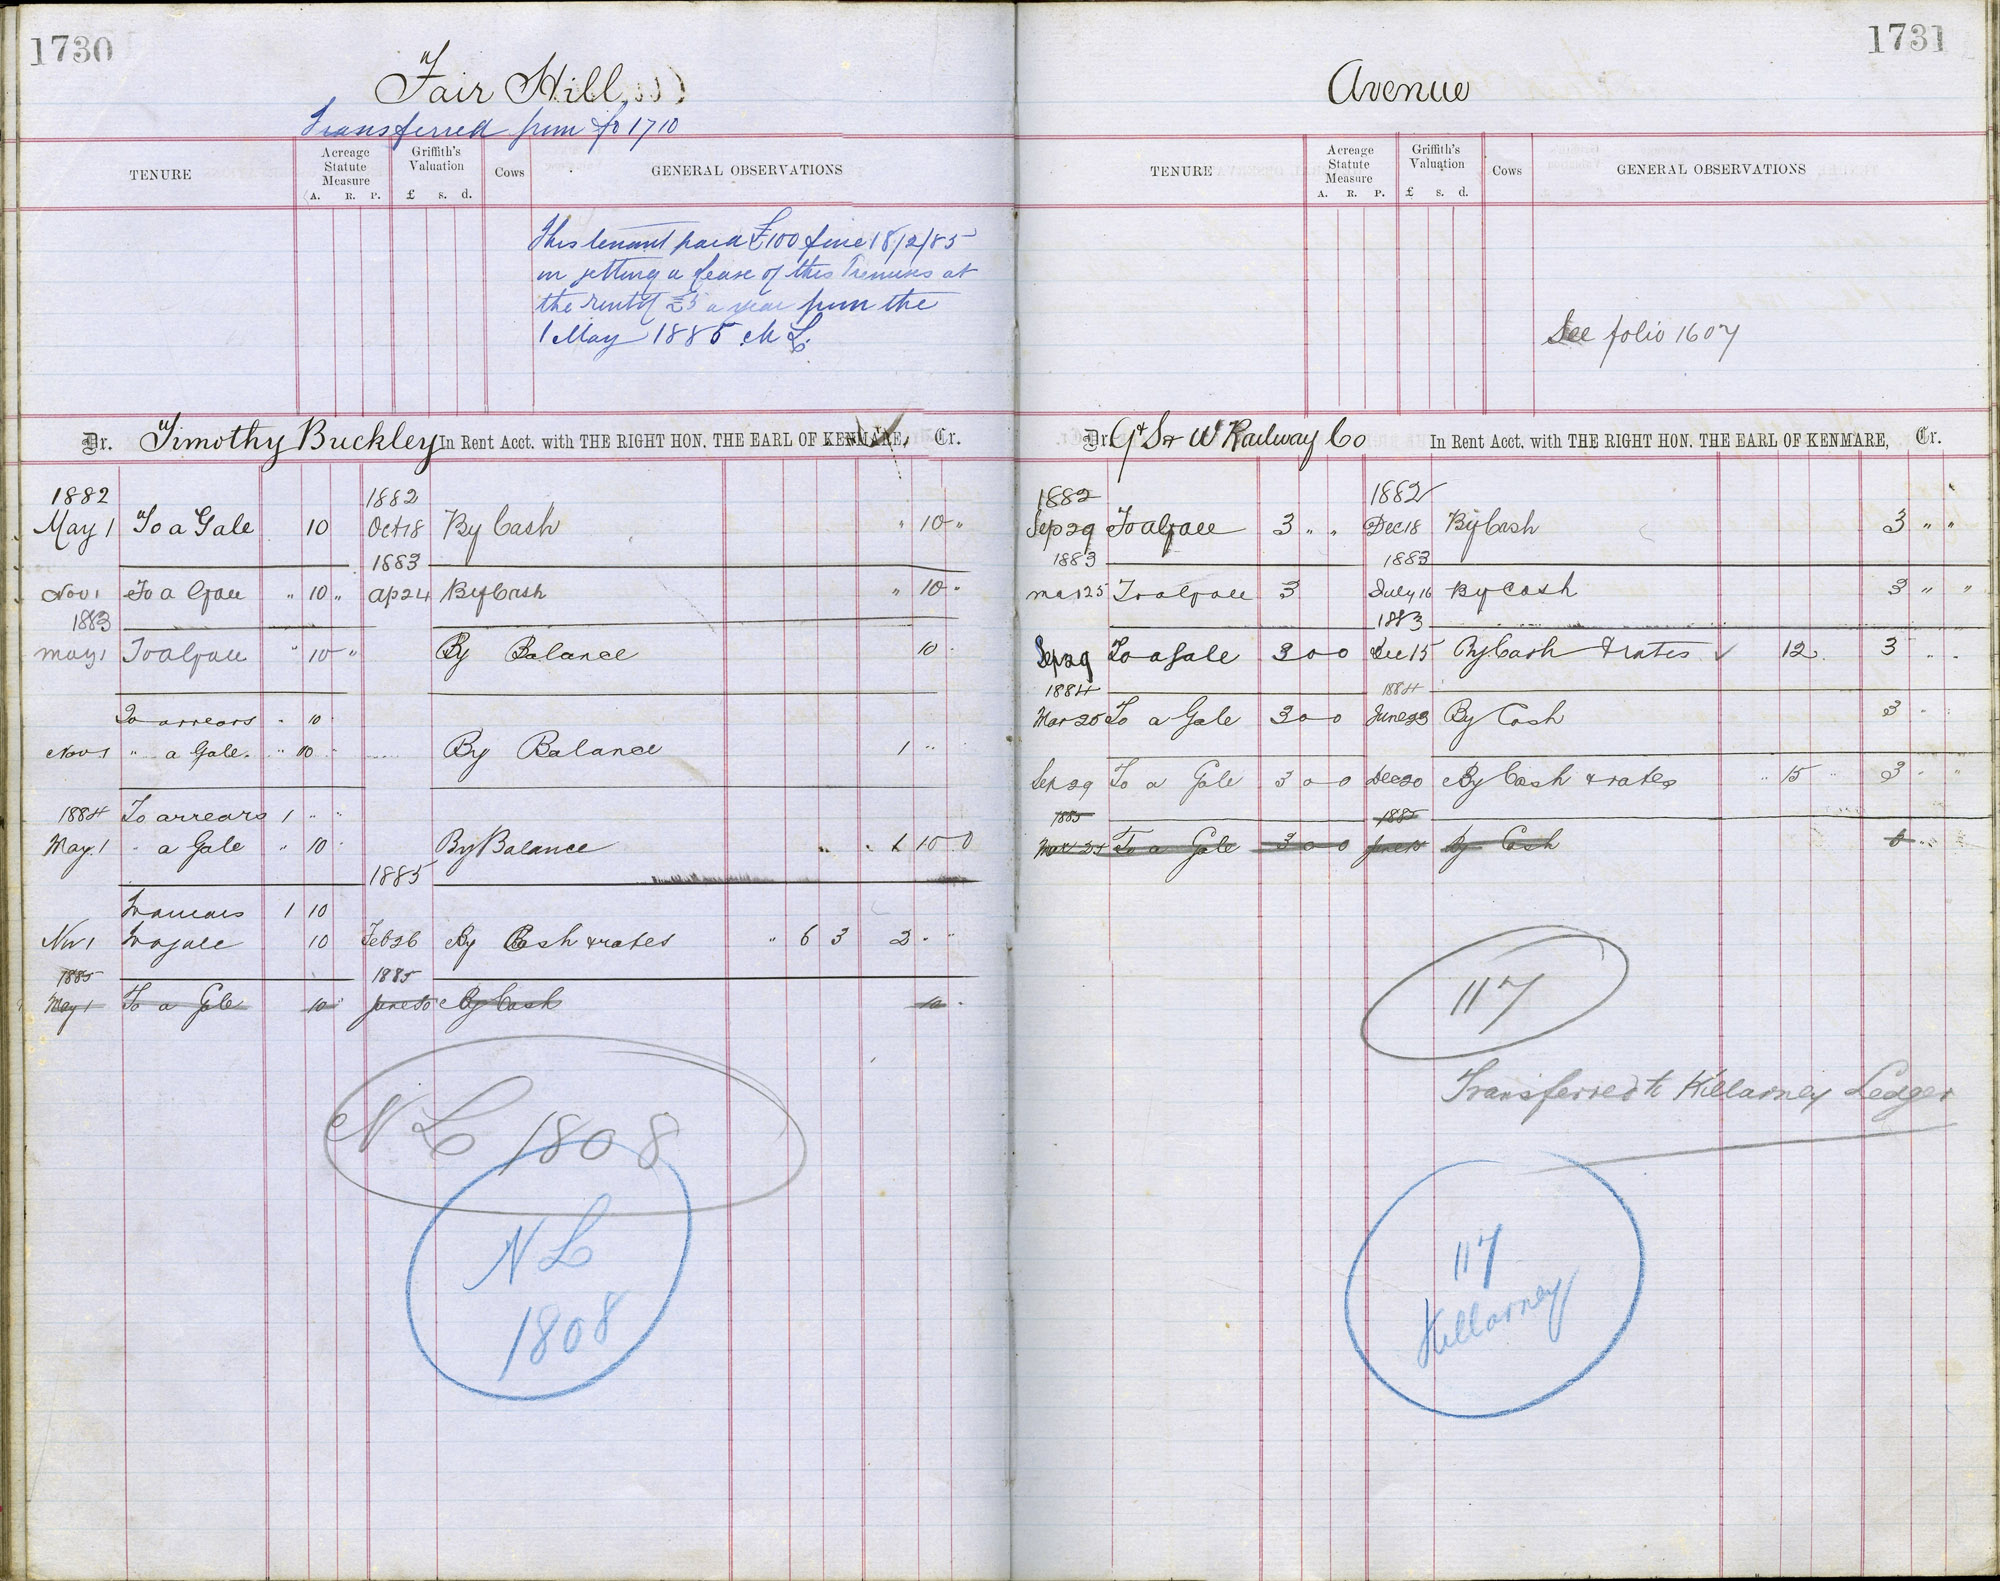 1730
Fair Hill
Transferred from fo 1710
TENURE
Acreage Statute Measure
A. R. P.
Griffith's Valuation
£ s. d.
Cows
GENERAL OBSERVATIONS
This tenant paid £100 fine 18/2/85
on getting a lease of this Premises at
the rent of £5 a year from the
1 May 1885 M L
Dr. Timothy Buckley In Rent Acct. with THE RIGHT HON. THE EARL OF KENMARE, Cr.
1882 1882
May 1 To a Gale 10 Oct 18 By Cash " 10 "
1883
Nov 1 To a Gale " 10 " Ap 24 By Cash " 10 "
1883
May 1 To a Gale " 10 " By Balance 10
To arrears " 10
Nov 1 " a Gale " 10 " By Balance 1 " "
1884 To arrears 1 " "
May 1 " a Gale " 10 " By Balance 1 10 0
1885
To arrears 1 10
Nov 1 To a gale 10 Feb 26 By Cash & rates " 6 3 2 " "
1885 1885
May 1 To a Gale 10 June By Cash 10
N L 1808
N L
1808
1731
Avenue
TENURE
Acreage Statute Measure
A. R. P.
Griffith's Valuation
£ s. d.
Cows
GENERAL OBSERVATIONS
See folio 1607
Dr. Gt Sn W Railway Co In Rent Acct. with THE RIGHT HON. THE EARL OF KENMARE, Cr.
1882 1882
Sep 29 To a Gale 3 " " Dec 18 By Cash 3 " "
1883 1883
Mar 25 To a Gale 3 July 16 By Cash 3 " "
1883
Sep 29 To a Gale 3 0 0 Dec 15 By Cash & rates 12 3 " "
1884 1884
Mar 25 To a Gale 3 0 0 June 23 By Cash 3 "
Sep 29 To a Gale 3 0 0 Dec 20 By Cash & rates " 15 " 3 " "
1885 1885
Mar 25 To a Gale 3 0 0 June By Cash
117
Transferred to Killarney Ledger
117
Killarney